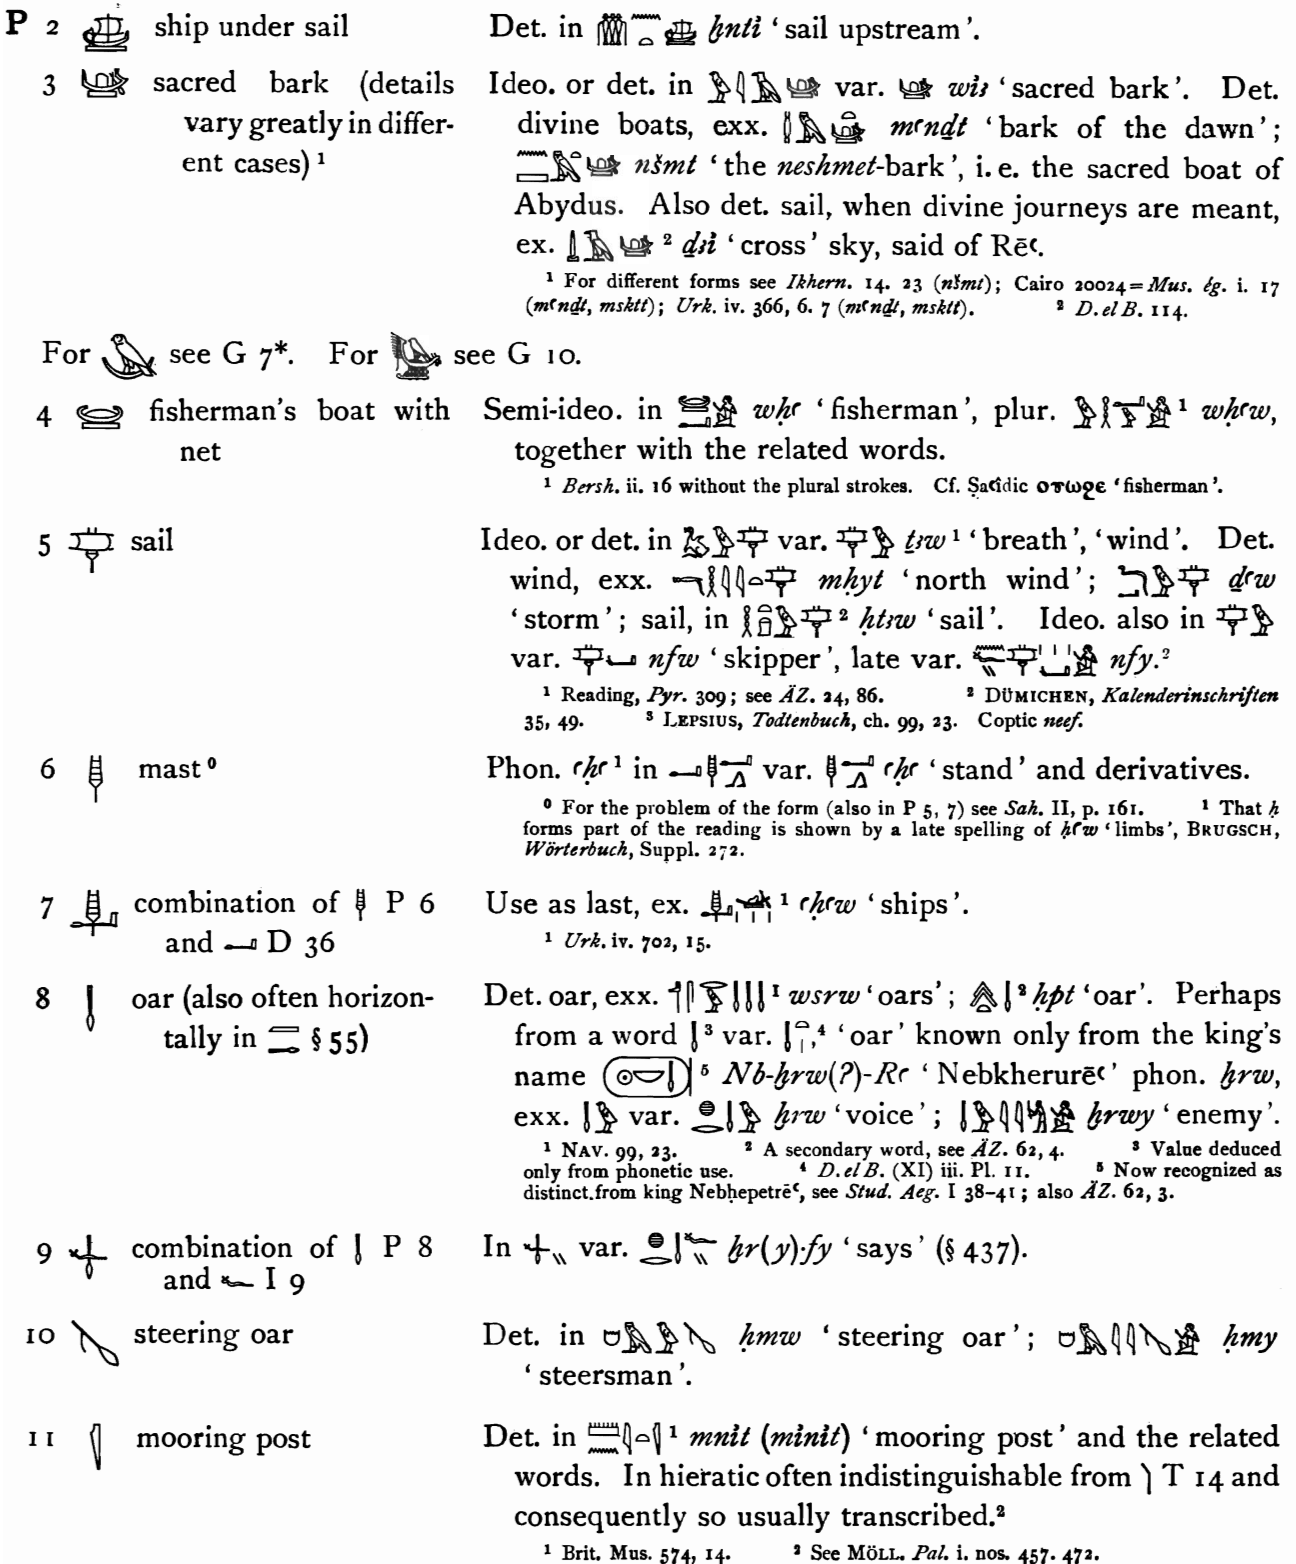 P 2 𓊞 ship under sail Det. in 𓏃𓈖𓏏𓊞 ḫntỉ ‘sail upstream’.
3 𓊟 sacred bark (details Ideo. or det. in 𓅱𓇋𓄿𓊟 var. 𓊟 wỉꜣ ‘sacred bark’. Det.
vary greatly in differ- divine boats, exx. mꜥnḏt ‘bark of the dawn’;
ent cases) ¹ nšmt ‘the neshmet-bark’, i. e. the sacred boat of
Abydus. Also det. sail, when divine journeys are meant,
ex. ² ḏꜣỉ ‘cross’ sky, said of Rēꜥ.
¹ For different forms see Ikhern. 14. 23 (nšmt); Cairo 20024=Mus. ég. i. 17
(mꜥnḏt, msktt); Urk. iv. 366, 6. 7 (mꜥnḏt, msktt). ² D. el B. 114.
For 𓅊 see G 7*. For 𓅍 see G 10.
4 𓊠 fisherman's boat with Semi-ideo. in wḥꜥ ‘fisherman’, plur. ¹ wḥꜥw,
net together with the related words.
¹ Bersh. ii. 16 without the plural strokes. Cf. Ṣaꜥîdic ⲟⲩⲱϩⲉ ‘fisherman’.
5 𓊡 sail Ideo. or det. in 𓅷𓅱𓊡 var. 𓊡𓅱 ṯꜣw ¹ ‘breath’, ‘wind’. Det.
wind, exx. mḥyt ‘north wind’; ḏꜥw
‘storm’; sail, in ² ḥtꜣw ‘sail’. Ideo. also in 𓊡𓅱
var. nfw ‘skipper’, late var. nfy.²
¹ Reading, Pyr. 309; see ÄZ. 24, 86. ² DÜMICHEN, Kalenderinschriften
35, 49. ³ LEPSIUS, Todtenbuch, ch. 99, 23. Coptic neef.
6 𓊢 mast ⁰ Phon. ꜥḥꜥ ¹ in 𓂝𓊢𓂝𓂻 var. 𓊢𓂝𓂻 ꜥḥꜥ ‘stand’ and derivatives.
⁰ For the problem of the form (also in P 5, 7) see Sah. II, p. 161. ¹ That ḥ
forms part of the reading is shown by a late spelling of ḥꜥw ‘limbs’, BRUGSCH,
Wörterbuch, Suppl. 272.
7 𓊣 combination of 𓊢 P 6 Use as last, ex. ¹ ꜥḥꜥw ‘ships’.
and 𓂝 D 36 ¹ Urk. iv. 702, 15.
8 𓊤 oar (also often horizon- Det. oar, exx. ¹ wsrw ‘oars’; ² ḥpt ‘oar’. Perhaps
tally in § 55) from a word 𓊤 ³ var. ,⁴ ‘oar’ known only from the king's
name ⁵ Nb-ḫrw(?)-Rꜥ ‘Nebkherurēꜥ’ phon. ḫrw,
exx. 𓊤𓅱 var. 𓐍𓂋𓊤𓅱 ḫrw ‘voice’; ḫrwy ‘enemy’.
¹ NAV. 99, 23. ² A secondary word, see ÄZ. 62, 4. ³ Value deduced
only from phonetic use. ⁴ D. el B. (XI) iii. Pl. 11. ⁵ Now recognized as
distinct from king Nebḥepetrēꜥ, see Stud. Aeg. I 38–41; also ÄZ. 62, 3.
9 𓊥 combination of 𓊤 P 8 In 𓊥𓏭 var. 𓐍𓂋𓊤𓆑𓏭 ḫr(y)·fy ‘says’ (§ 437).
and 𓆑 I 9
10 𓊦 steering oar Det. in 𓎛𓅓𓅱𓊦 ḥmw ‘steering oar’; ḥmy
‘steersman’.
11 𓊧 mooring post Det. in 𓏠𓈖𓇋𓏏𓊧 ¹ mnỉt (mỉnỉt) ‘mooring post’ and the related
words. In hieratic often indistinguishable from 𓌙 T 14 and
consequently so usually transcribed.²
¹ Brit. Mus. 574, 14. ² See MÖLL. Pal. i. nos. 457. 472.